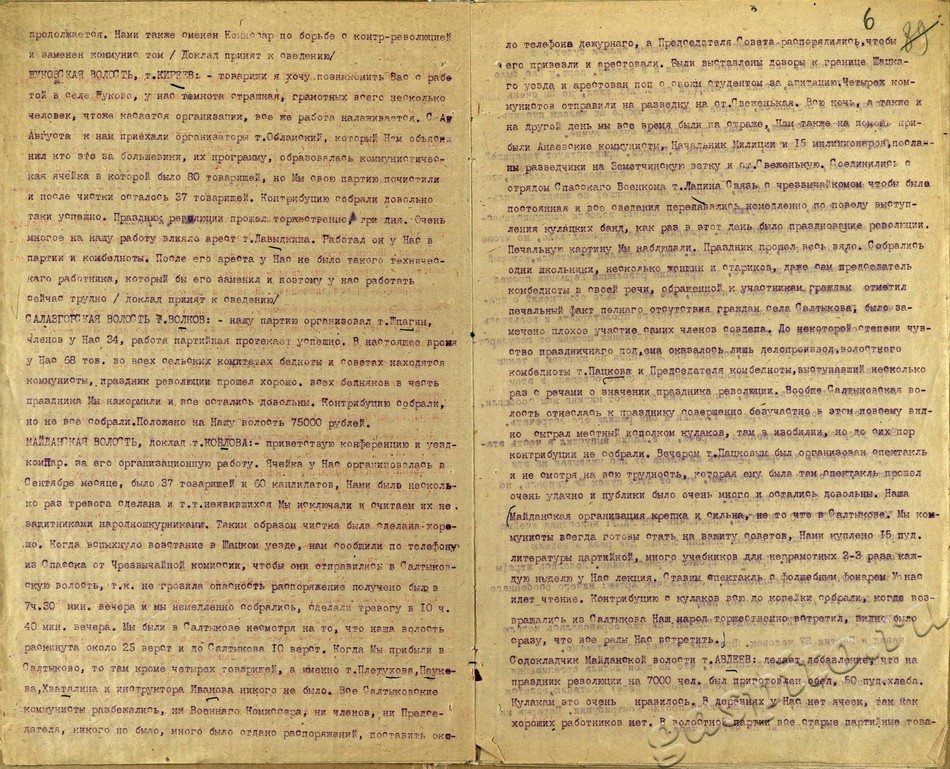 продолжается. Нами также сменен Комиссар по борьбе с контр-революцией
и заменен коммунис том / Доклад принят к сведению/
ЖУКОВСКАЯ ВОЛОСТЬ, т.КИРЕЕВ: - товарищи я хочу познакомить Вас с рабо
той в селе Жукове, у нас темнота страшная, грамотных всего несколько
человек, чтоже касается организации, все же работа налаживается. С Ав
Августа к нам приехали организаторы т.Обланский, который Нам объясн
нил кто это за большевики, их программу, образовалась коммунистичес-
кая ячейка в которой было 80 товарищей, но Мы свою партию почистили
и после чистки осталось 37 товарищей. Контрибуцию собрали довольно
таки успешно. Праздник революции прошел торжественно три дня. Очень
многое на нашу работу влияло арест т.Лавыдкина. Работал он у Нас в
партии и комбедноты. После его ареста у Нас не было такого техничес-
каго работника, который бы его заменил и поэтому у нас работать
сейчас трудно / доклад принят к сведению/
САЛАЗГОРСКАЯ ВОЛОСТЬ т.ВОЛКОВ: - нашу партию организовал т.Шпагин,
членов у Нас 34, работа партийная протекает успешно. В настоящее время
у Нас 68 тов. во всех сельских комитетах бедноты и советах находятся
коммунисты, праздник революции прошел хорошо. всех бедняков в честь
праздника Мы накормили и все остались довольны. Контрибуцию собрали,
но не все собрали.Положено на Нашу волость 75000 рублей.
МАЙДАНСКАЯ ВОЛОСТЬ, доклад т.КОЗЛОВА:- приветствую конференцию и уезд-
комПар. за его организационную работу. Ячейка у Нас организовалась в
Сентябре месяце, было 37 товарищей и 60 кандидатов, Нами было несколь-
ко раз тревога сделана и т.т.неявившихся Мы исключали и считаем их не
защитниками народношкурниками. Таким образом чистка была сделана хоро-
шо. Когда вспыхнуло возстание в Шацком уезде, нам сообщили по телефону
из Спасска от Чрезвычайной комиссии, чтобы они отправились в Салтыков-
скую волость, т.к. не грозила опасность распоряжение получено было в
7ч.30 мин. вечера и мы немедленно собрались, сделали тревогу в 10 ч.
40 мин. вечера. Мы были в Салтыкове несмотря на то, что наша волость
раскинута около 25 верст и до Салтыкова 10 верст. Когда Мы прибыли в
Салтыково, то там кроме четырех товарищей, а именно т.Плетухова,
ва,Хваталина и инструктора Иванова никого не было. Все Салтыковские
коммунисты разбежались, ни Военнаго Комиссара, ни членов, ни Предсе-
дателя, никого не было, много было отдано распоряжений, поставить око-
6
89
ло телефона дежурнаго, а Председателя Совета распорядились,чтобы
его привезли и арестовали. Были выставлены дозоры к границе Шацка-
го уезда и арестован поп с своим студентом за агитацию.Четырех ком-
мунистов отправили на разведку на ст.Свеженькая. Всю ночь, а также и
на другой день мы все время были на страже, Нам также на помощь при-
были Анаевские коммунисты, Начальник Милиции и 15 милиционеров,послан-
ны разведчики на Земетчинскую ветку и ст.Свеженькую. Соединились с
отрядом Спасскаго Военкома т.Лапина Связь с чрезвычайкомом чтобы была
постоянная и все сведения передавались немедленно по поводу выступ-
ления кулацких банд, как раз в этот день было празднование революции.
Печальную картину Мы наблюдали. Праздник прошел весь вяло. Собрались
одни школьники, несколько женщин и стариков, даже сам председатель
комбедноты в своей речи, обращенной к участникам граждан отметил
печальный факт полнаго отсутствия граждан села Салтыкова, было за-
мечено плохое участие самих членов совдепа. До некоторой степени чув-
ство праздничнаго под,ема оказалось лишь делопроизвод.волостного
комбедноты т.Пацкова и Председателя комбедноты,выступавший несколько
раз с речами о значении праздника революции. Вообще Салтыковская во-
лость отнеслась к празднику совершенно безучастно в этом повсему вид-
но сыграл местный исполком кулаков, там в изобилии, но до сих пор
контрибуции не собрали. Вечером т.Пацковым был организован спектакль
и не смотря на всю трудность, которая ему была там спектакль прошел
очень удачно и публики было очень много и остались довольны. Наша
Майданская организация крепка и сильна, не то что в Салтыкове. Мы ком-
мунисты всегда готовы стать на защиту советов, Нами куплено 15 пуд.
литературы партийной, много учебников для неграмотных 2-3 раза каж-
дую неделю у Нас лекция. Ставим спектакль с волшебным фонарем У нас
идет чтение. Контрибуцию с кулаков всю до копейки собрали, когда воз-
вращались из Салтыкова Наш народ торжественно встретил, видно было
сразу, что все рады Нас встретить.
Содокладчик Майданской волости т.АВДЕЕВ: делает добавление, что на
праздник революции на 7000 чел. был приготовлен обед, 50 пуд.хлеба.
Кулакам это очень нравилось. В деревнях у Нас нет ячеек, так как
хороших работников нет. В волостной партии все старые партийные това-